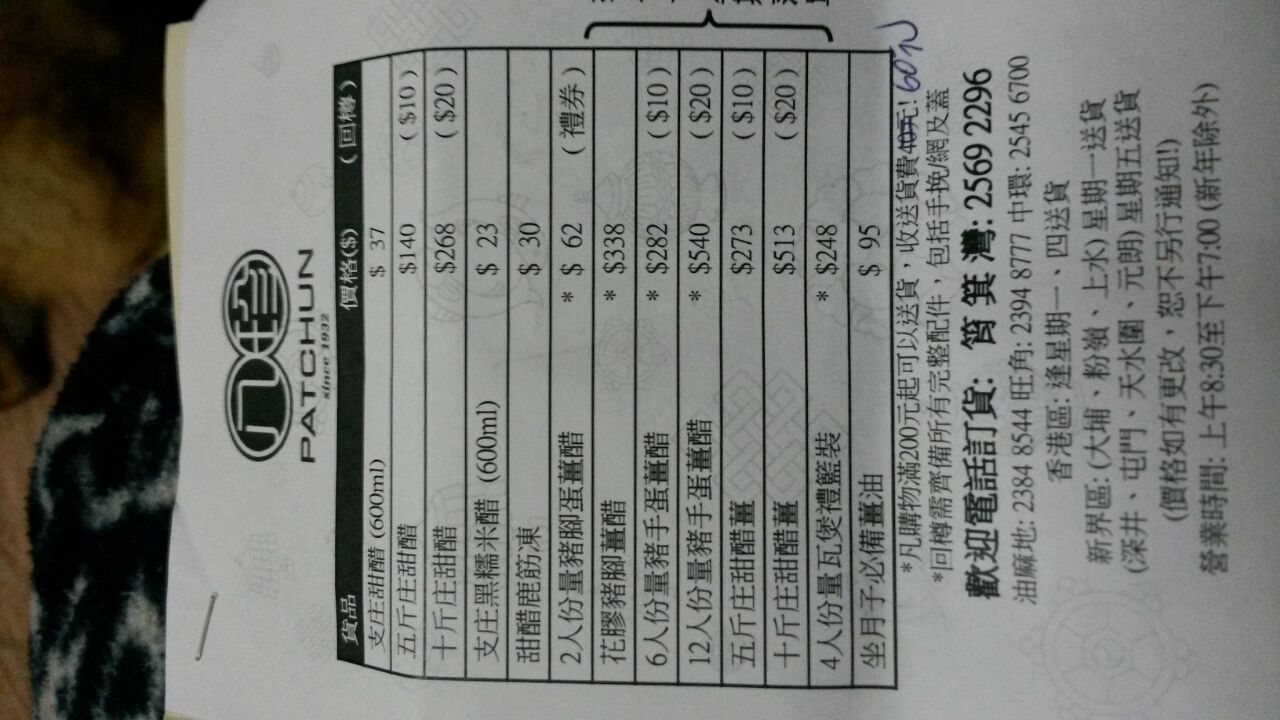 八珍
PATCHUN
since 1932
貨品 價格($) (回樽)
支庄甜醋 (600ml) $ 37
五斤庄甜醋 $140 ($10)
十斤庄甜醋 $268 ($20)
支庄黑糯米醋 (600ml) $ 23
甜醋鹿筋凍 $ 30
2人份量豬腳蛋薑醋 * $ 62 (禮券)
花膠豬腳薑醋 * $338
6人份量豬手蛋薑醋 * $282 ($10)
12人份量豬手蛋薑醋 * $540 ($20)
五斤庄甜醋薑 $273 ($10)
十斤庄甜醋薑 $513 ($20)
4人份量瓦煲禮籃裝 * $248
坐月子必備薑油 $ 95
*凡購物滿200元起可以送貨，收送貨費40元! 60元
*回樽需齊備所有完整配件，包括手挽/網及蓋
歡迎電話訂貨: 筲箕灣: 2569 2296
油麻地: 2384 8544 旺角: 2394 8777 中環: 2545 6700
香港區: 逢星期一、四送貨
新界區: (大埔、粉嶺、上水) 星期一送貨
(深井、屯門、天水圍、元朗) 星期五送貨
(價格如有更改，恕不另行通知!)
營業時間: 上午8:30至下午7:00 (新年除外)